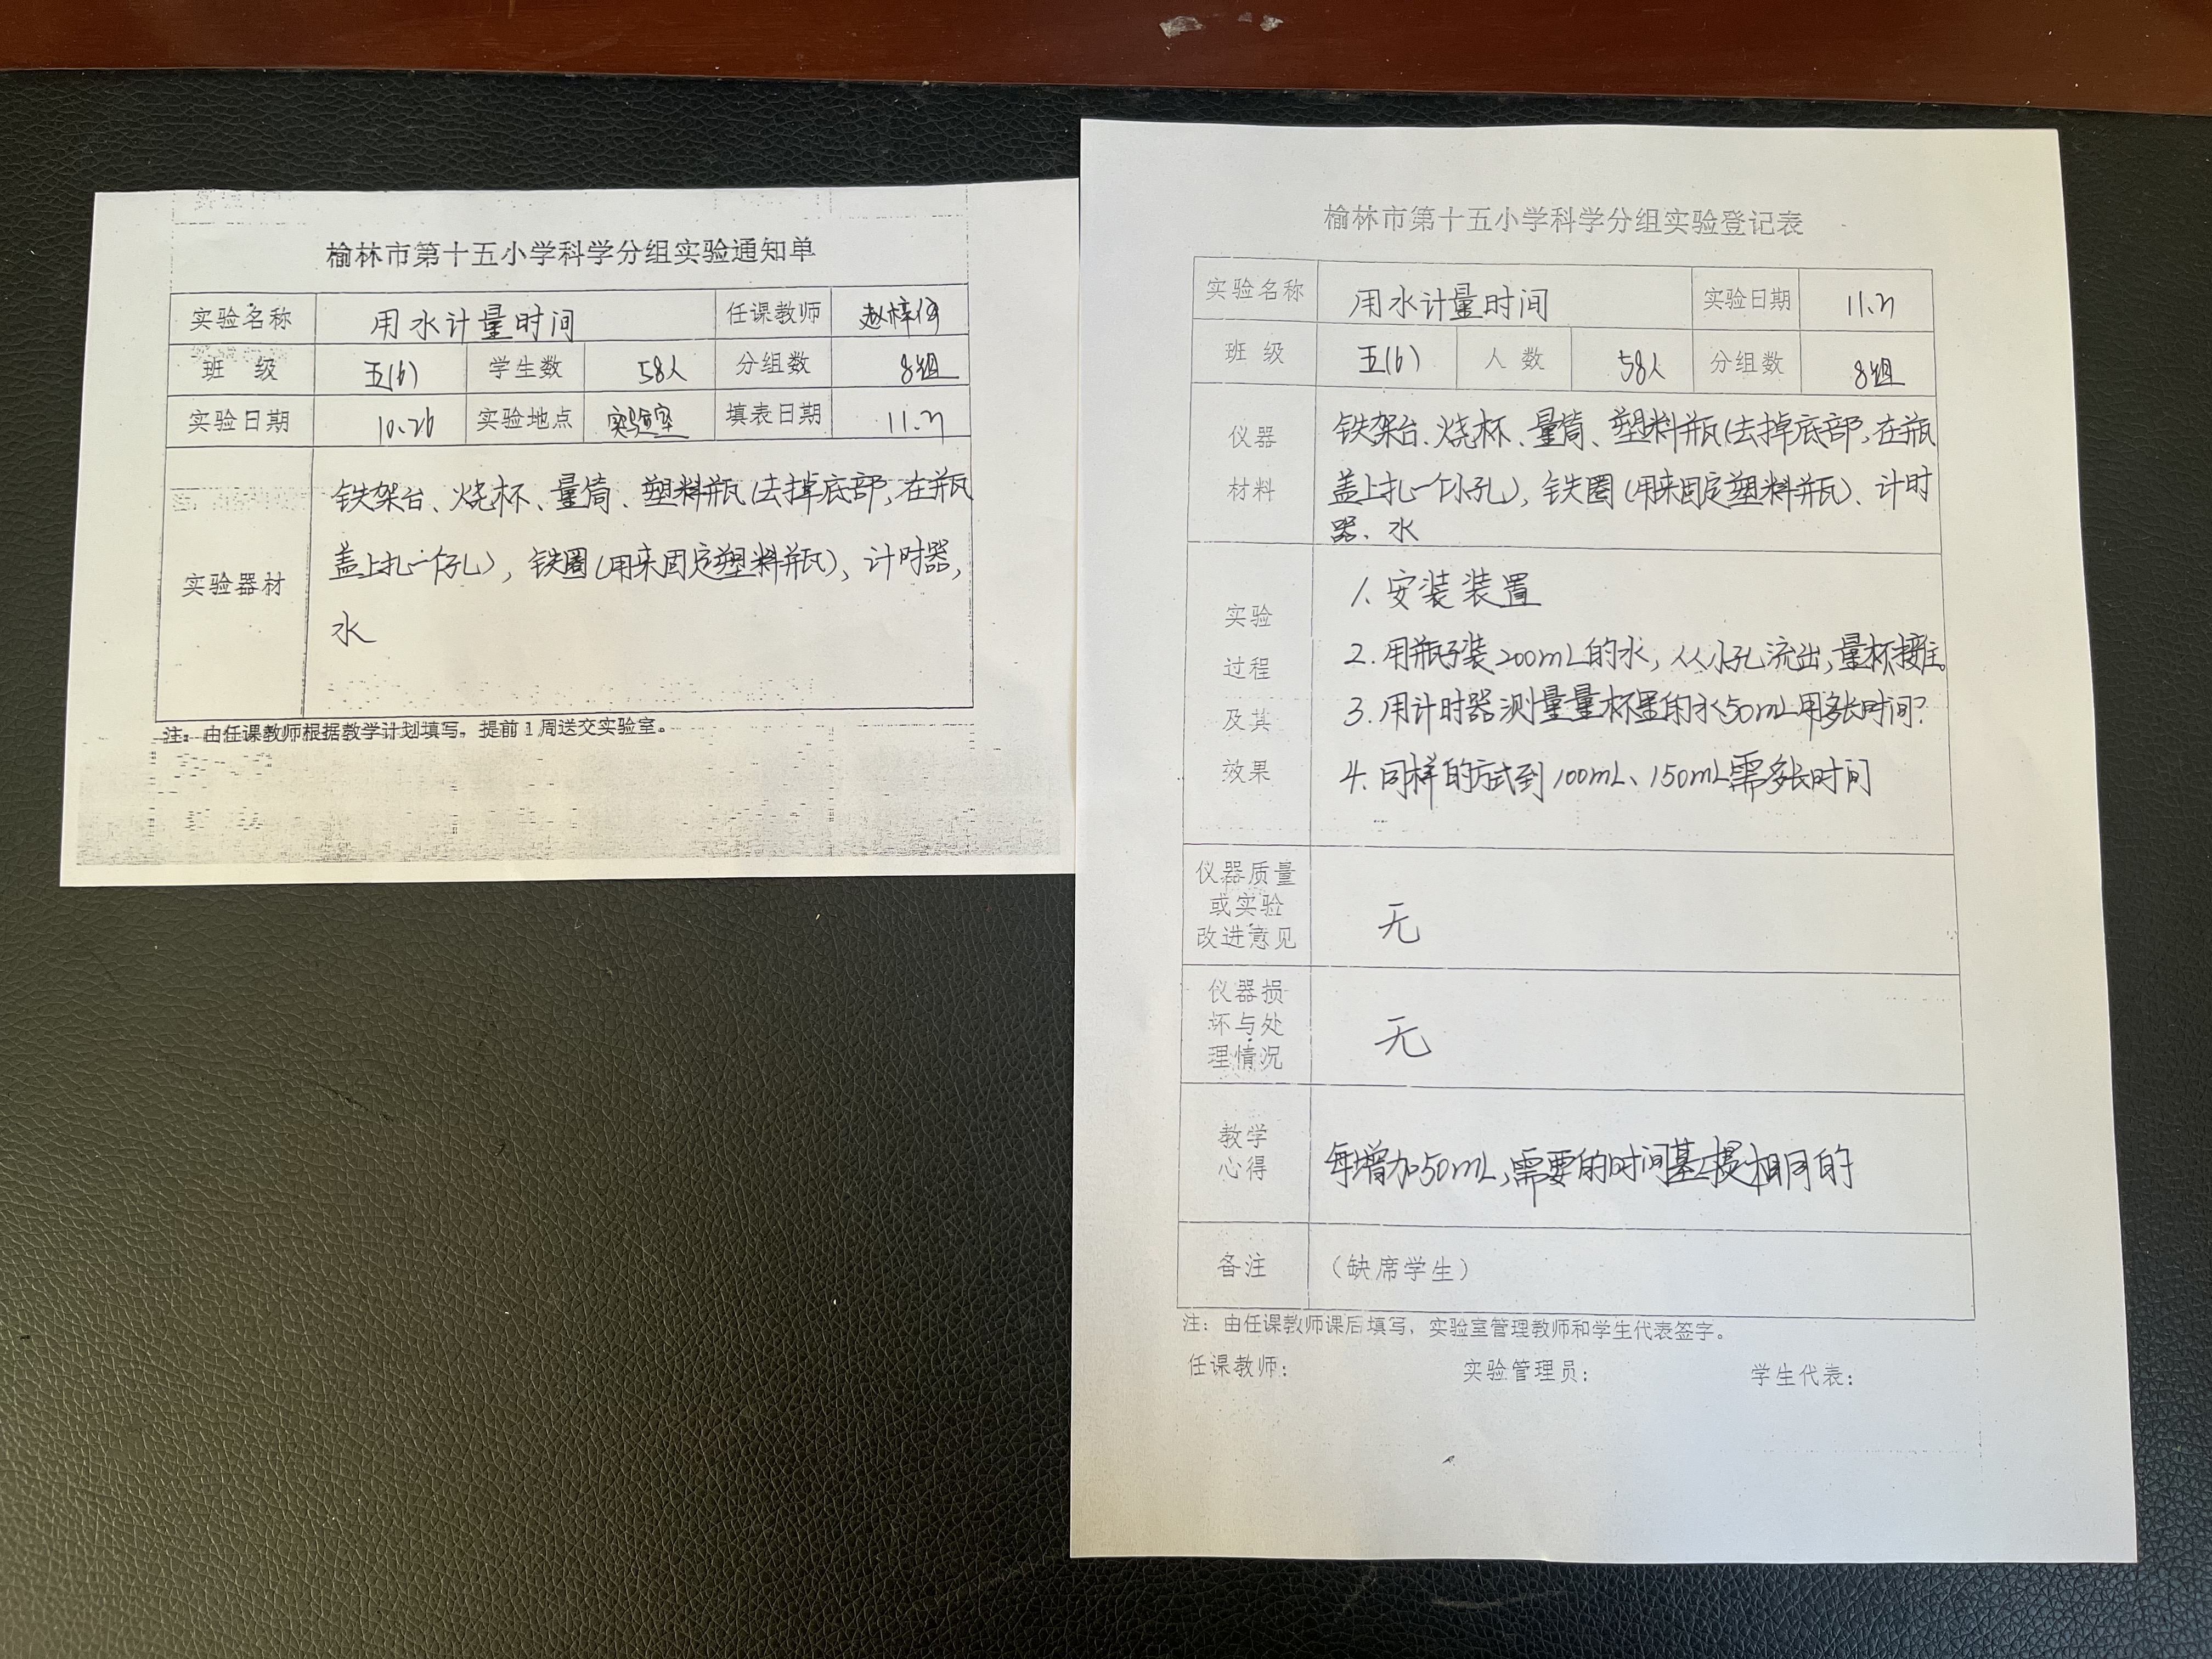 榆林市第十五小学科学分组实验通知单
实验名称 用水计量时间 任课教师
班 级 五(6) 学生数 58人 分组数 8组
实验日期 10.26 实验地点 实验室 填表日期
实验器材
铁架台、烧杯、量筒、塑料瓶(去掉底部,在瓶
盖上扎一个孔),铁圈(用来固定塑料瓶)、计时器,
水
注:由任课教师根据教学计划填写,提前1周送交实验室。
榆林市第十五小学科学分组实验登记表
实验名称 用水计量时间 实验日期
班 级 五(6) 人 数 58人 分组数 8组
仪器
材料
铁架台、烧杯、量筒、塑料瓶(去掉底部,在瓶
盖上扎一个小孔),铁圈(用来固定塑料瓶)、计时
器、水
实验
过程
及其
效果
1.安装装置
2.用瓶子装200mL的水,从小孔流出,量杯接住。
3.用计时器测量量杯里的水50mL用多长时间?
4.同样的方式到100mL、150mL需多长时间
仪器质量
或实验
改进意见
无
仪器损
坏与处
理情况
无
教学
心得
每增加50mL,需要的时间基本是相同的
备注 (缺席学生)
注:由任课教师课后填写,实验室管理教师和学生代表签字。
任课教师: 实验管理员: 学生代表: